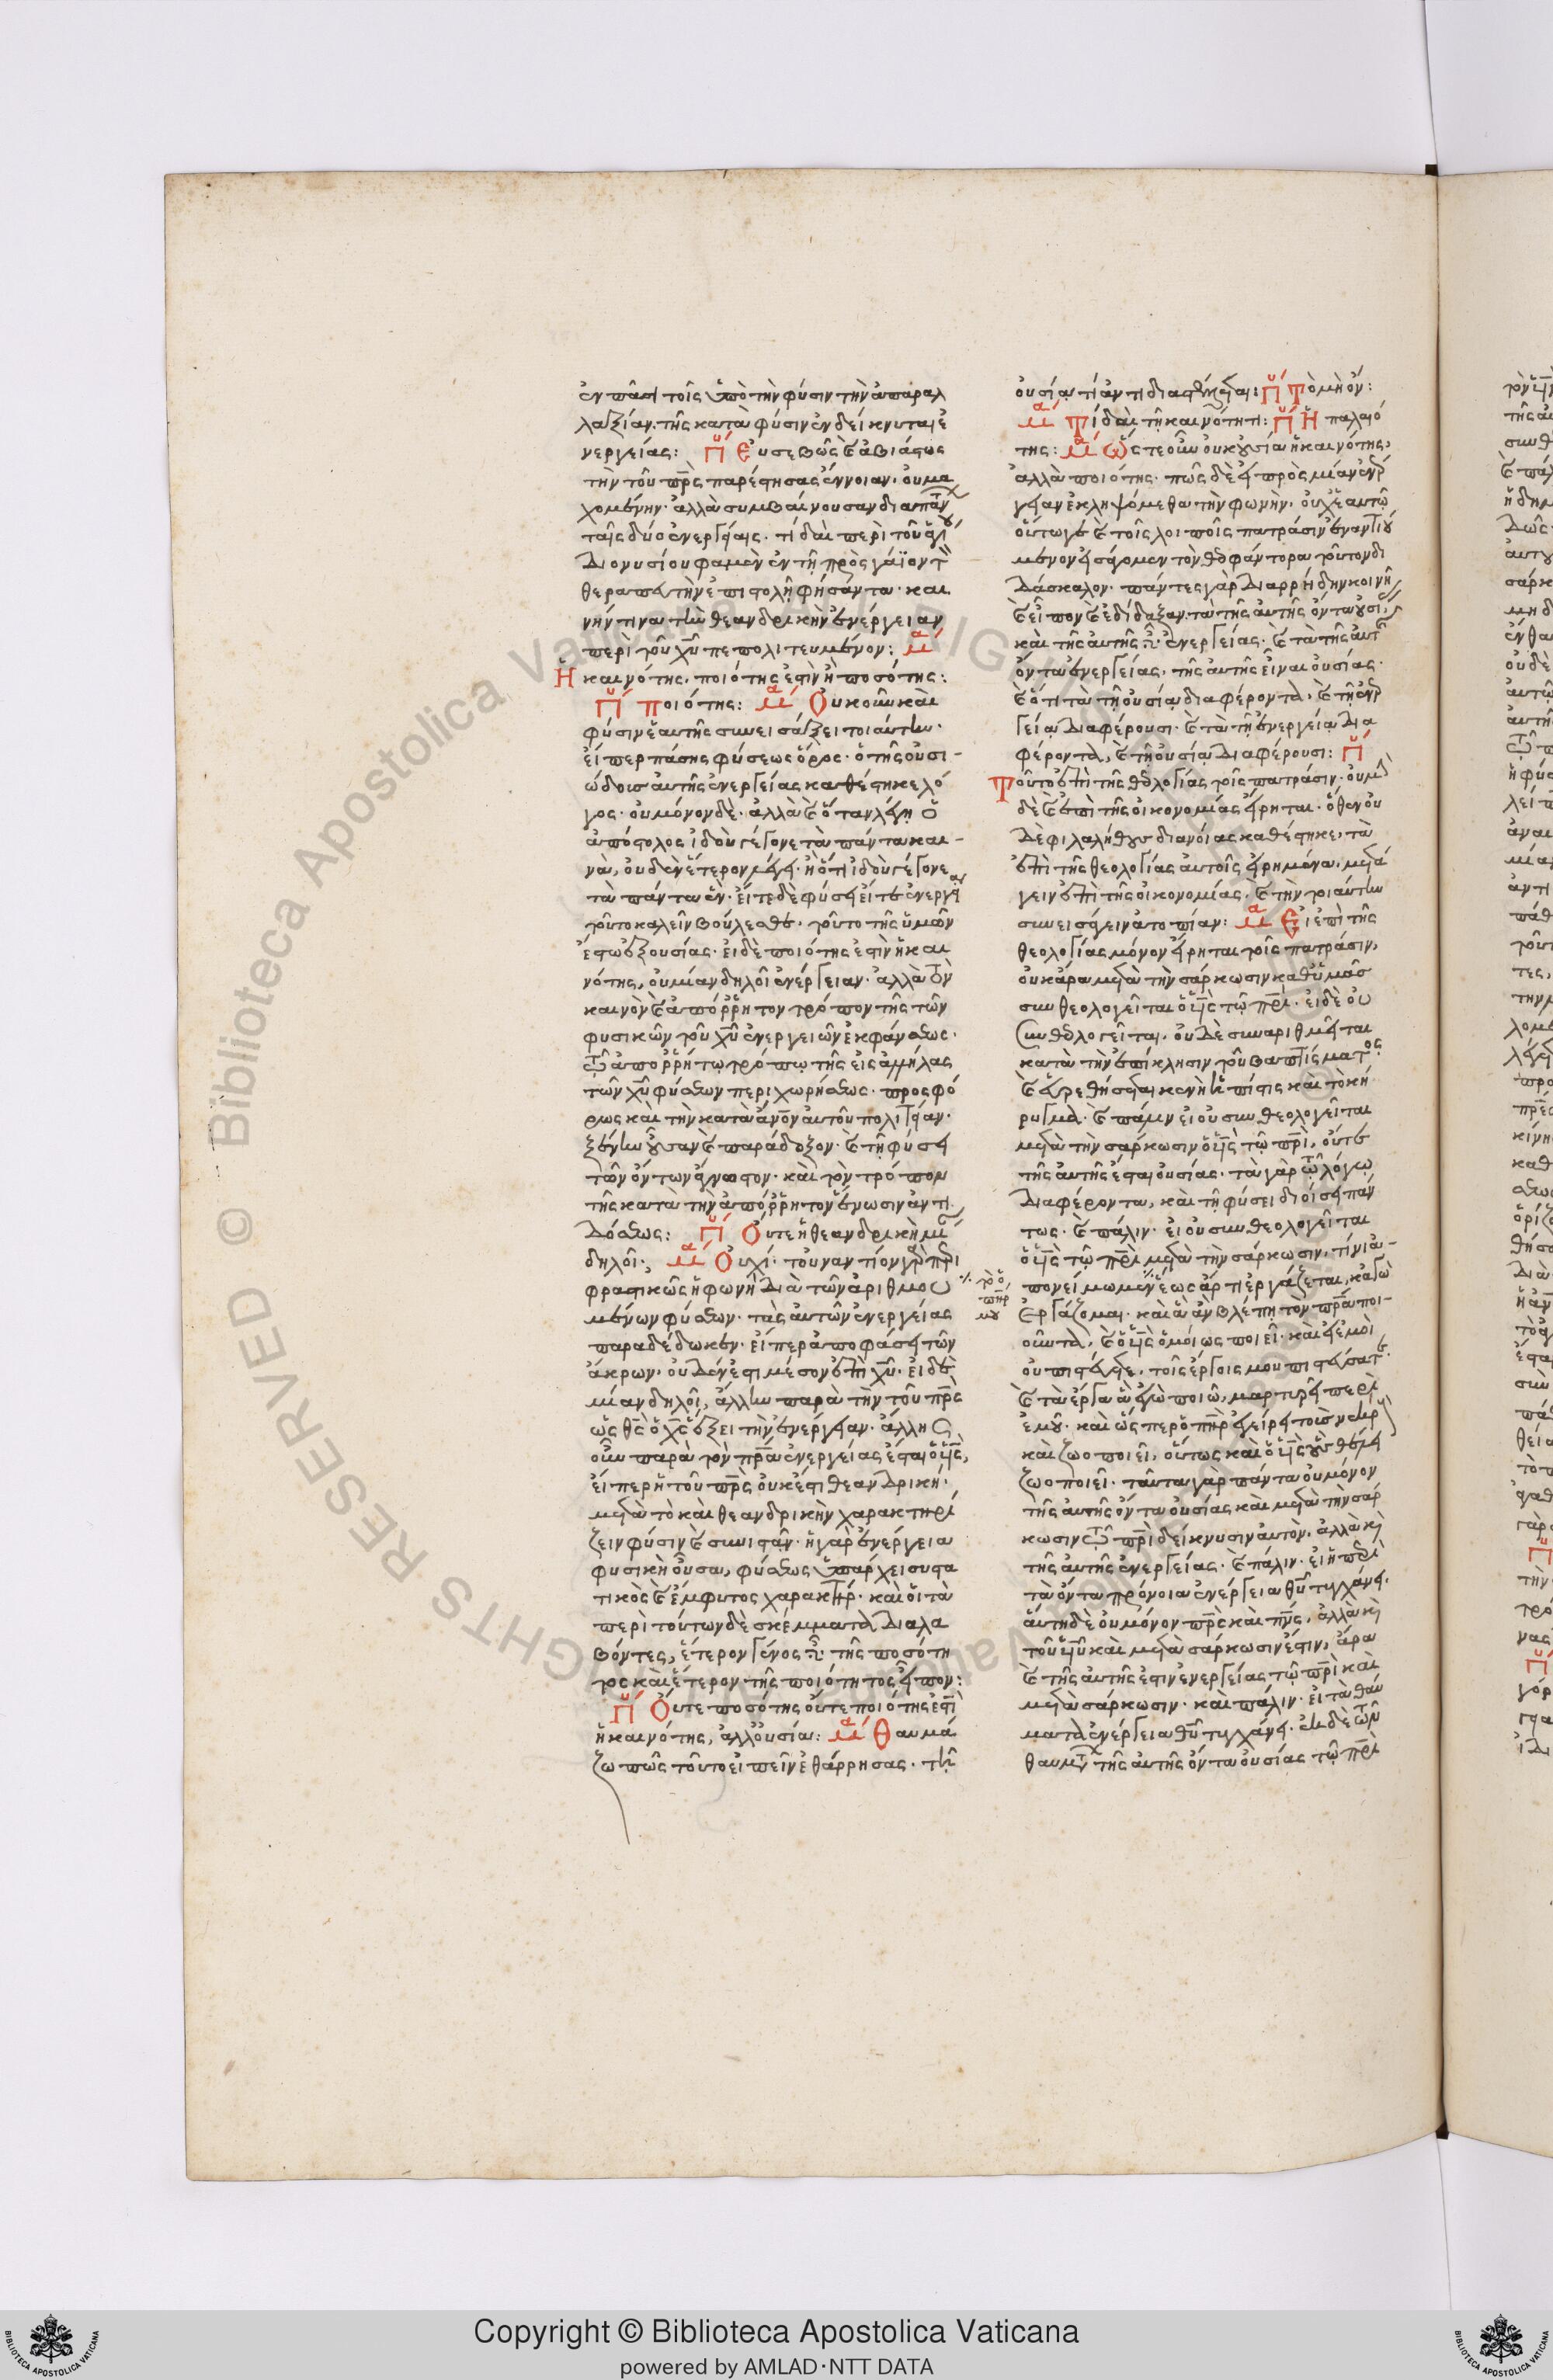 ἐν πᾶσι τοῖς ὑπὸ τὴν φύσιν τὴν ἀπαραλ
λαξίαν τῆς κατὰ φύσιν ἐνδείκνυται ἐ
νεργείας: Πυ Εὐσεβῶς καὶ ἀβιάστως
τὴν τοῦ πρς παρέστησας ἔννοιαν, οὐ μα
χομένην· ἀλλὰ συμβαίνουσαν διαπαν
ταῖς δύο ἐνεργείαις. τί δαὶ περὶ τοῦ ἁγίου
Διονυσίου φαμὲν ἐν τῇ πρὸς γάϊον τὸν
θεραπευτὴν ἐπιστολῇ φήσαντα· και
νήν τινα τὴν θεανδρικὴν ἐνέργειαν
περὶ τοῦ χυ πεπολιτευμένον: Μα
Ἡ καινότης, ποιότης ἐστὶν ἢ ποσότης:
Πυ Ποιότης: Μα Οὐκοῦν καὶ
φύσιν ἑαυτῆς συνεισάξει τοιαύτην·
εἴπερ πάσης φύσεως ὅρος· ὁ τῆς οὐσι-
ώδους αὐτῆς ἐνεργείας καθέστηκε λό
γος· οὐ μόνον δὲ· ἀλλὰ καὶ ὅταν λέγῃ ὁ
ἀπόστολος ἰδοὺ γέγονε τὰ πάντα και-
νά, οὐδὲν ἕτερον λέγει· ἢ ὅτι ἰδοὺ γέγονε
τὰ πάντα ἕν· εἴτε δὲ φύσει εἴτε ἐνεργείᾳ
τοῦτο καλεῖν βούλεσθε· τοῦτο τῆς ὑμῶν
ἔστω ἐξουσίας· εἰ δὲ ποιότης ἐστὶν ἡ και
νότης, οὐ μίαν δηλοῖ ἐνέργειαν· ἀλλὰ τὸν
καινὸν καὶ ἀπόῤῥητον τρόπον τῆς τῶν
φυσικῶν τοῦ χυ ἐνεργειῶν ἐκφάνσεως·
τῷ ἀποῤῥήτῳ τρόπῳ τῆς εἰς ἀλλήλας
τῶν χυ φύσεων περιχωρήσεως· προσφό
ρως καὶ τὴν κατὰ ἄνον αὐτοῦ πολιτείαν·
ξένην οὖσαν καὶ παράδοξον· καὶ τῇ φύσει
τῶν ὄντων ἄγνωστον· καὶ τὸν τρόπον
τῆς κατὰ τὴν ἀπόῤῥητον ἕνωσιν ἀντι
δόσεως: Πυ Οὔτε ἡ θεανδρικὴ μίαν
δηλοῖ; Μα Οὐχί· τοὐναντίον γὰρ περι
φραστικῶς ἡ φωνὴ διὰ τῶν ἀριθμου
μένων φύσεων· τὰς αὐτῶν ἐνεργείας
παραδέδωκεν· εἴπερ ἀποφάσει τῶν
ἄκρων· οὐδέν ἐστι μέσον ἐπὶ χυ· εἰ δὲ
μίαν δηλοῖ, ἄλλην παρὰ τὴν τοῦ πρς
ὡς θς ὁ χς ἕξει τὴν ἐνέργειαν· ἄλλης
οὖν παρὰ τὸν πρα ἐνεργείας ἔσται ὁ υς,
εἴπερ ἡ τοῦ πρς οὐκ ἔστι θεανδρική·
μετὰ τὸ καὶ θεανδρικὴν χαρακτηρί
ζειν φύσιν καὶ συνιστᾶν· ἡ γὰρ ἐνέργεια
φυσικὴ οὖσα, φύσεως ὑπάρχει συστα
τικὸς καὶ ἔμφυτος χαρακτήρ· καὶ οἱ τὰ
περὶ τούτων δὲ σκέμματα διαλα
βόντες, ἕτερον γένος εἶναι τῆς ποσότη
τος καὶ ἕτερον τῆς ποιότητος εἶπον:
Πυ Οὔτε ποσότης οὔτε ποιότης ἐστὶ
ἡ καινότης, ἀλλ' οὐσία: Μα Θαυμά
ζω πῶς τοῦτο εἰπεῖν ἐθάρρησας. τῇ
οὐσίᾳ τί ἀντιδιαστέλλεται: Πυ Τὸ μὴ ὄν:
Μα Τί δαὶ τῇ καινότητι: Πυ Ἡ παλαιό
της: Μα Ὥστε οὖν οὐκ οὐσία ἡ καινότης,
ἀλλὰ ποιότης· πῶς δὲ εἰ πρὸς μίαν ἐνέρ
γειαν ἐκληψόμεθα τὴν φωνὴν, οὐχ ἑαυτῷ
οὕτως καὶ τοῖς λοιποῖς πατράσιν ἐναντιού
μενον εἰσάγομεν τὸν θεοφάντορα τοῦτον δι
δάσκαλον· πάντες γὰρ διαρρήδην κοινῇ
καὶ εἶπον καὶ ἐδίδαξαν, τὰ τῆς αὐτῆς ὄντα οὐσίας
καὶ τῆς αὐτῆς εἶναι ἐνεργείας· καὶ τὰ τῆς αὐτῆς
ὄντα ἐνεργείας, τῆς αὐτῆς εἶναι οὐσίας·
καὶ ὅτι τὰ τῇ οὐσίᾳ διαφέροντα, καὶ τῇ ἐνερ
γείᾳ διαφέρουσι· καὶ τὰ τῇ ἐνεργείᾳ δια
φέροντα, καὶ τῇ οὐσίᾳ διαφέρουσι: Πυ
Τοῦτο ἐπὶ τῆς θεολογίας τοῖς πατράσιν· οὐ μὴν
δὲ καὶ ἐπὶ τῆς οἰκονομίας εἴρηται· ὅθεν οὐ
δὲ φιλαλήθους διανοίας καθέστηκε, τὰ
ἐπὶ τῆς θεολογίας αὐτοῖς εἰρημένα, μετά
γειν ἐπὶ τῆς οἰκονομίας, καὶ τὴν τοιαύτην
συνεισάγειν ἀτοπίαν: Μα Εἰ ἐπὶ τῆς
θεολογίας μόνον εἴρηται τοῖς πατράσιν,
οὐκ ἄρα μετὰ τὴν σάρκωσιν καθ' ὑμᾶς
συνθεολογεῖται ὁ υς τῷ πρι· εἰ δὲ οὐ
συνθεολογεῖται, οὐδὲ συναριθμεῖται
κατὰ τὴν ἐπίκλησιν τοῦ βαπτίσματος
καὶ εὑρεθήσεται κενὴ ἡ πίστις καὶ τὸ κή
ρυγμα· καὶ πάλιν εἰ οὐ συνθεολογεῖται
μετὰ τὴν σάρκωσιν ὁ υς τῷ πρι, οὔτε
τῆς αὐτῆς ἔσται οὐσίας· τὰ γὰρ τῷ λόγῳ
διαφέροντα, καὶ τῇ φύσει διοίσει πάν
τως· καὶ πάλιν· εἰ οὐ συνθεολογεῖται
ὁ υς τῷ πρι μετὰ τὴν σάρκωσιν, τίνι ἀ-
πονείμωμεν ἕως ἄρτι ἐργάζεται, κἀγὼ
γρ ὁ πηρ μου
ἐργάζομαι· καὶ ἃ ἂν βλέπῃ τὸν πρα ποι-
οῦντα, καὶ ὁ υς ὁμοίως ποιεῖ· καὶ εἰ ἐμοὶ
οὐ πιστεύετε, τοῖς ἔργοις μου πιστεύσατε·
καὶ τὰ ἔργα ἃ ἐγὼ ποιῶ, μαρτυρεῖ περὶ
ἐμοῦ· καὶ ὥσπερ ὁ πηρ ἐγείρει τοὺς νεκρούς
καὶ ζωοποιεῖ, οὕτως καὶ ὁ υς οὓς θέλει
ζωοποιεῖ· ταῦτα γὰρ πάντα οὐ μόνον
τῆς αὐτῆς ὄντα οὐσίας καὶ μετὰ τὴν σάρ
κωσιν τῷ πρι δείκνυσιν αὐτὸν, ἀλλὰ καὶ
τῆς αὐτῆς ἐνεργείας· καὶ πάλιν· εἰ ἡ περὶ
τὰ ὄντα πρόνοια ἐνέργεια θυ τυγχάνει,
αὕτη δὲ οὐ μόνον πρς καὶ πνς, ἀλλὰ καὶ
τοῦ υυ καὶ μετὰ σάρκωσιν ἐστιν, ἄρα
καὶ τῆς αὐτῆς ἐστιν ἐνεργείας τῷ πρι καὶ
μετὰ σάρκωσιν· καὶ πάλιν· εἰ τὰ θαύ
ματα ἐνέργεια θυ τυγχάνει· ἐκ δὲ τῶν
θαυμάτων τῆς αὐτῆς ὄντα οὐσίας τῷ πρι
Copyright © Biblioteca Apostolica Vaticana
powered by AMLAD·NTT DATA